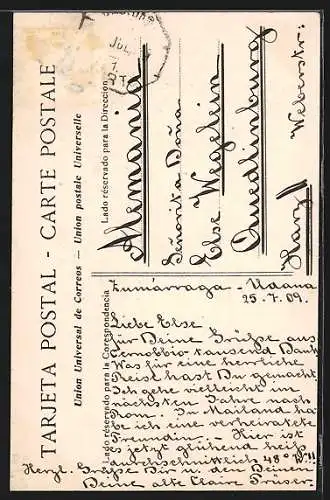 TARJETA POSTAL - CARTE POSTALE
Union Universal de Correos — Union postale Universelle
Lado réservado para la Direccion
Alemania
Señorita Doña
Else Weglein
Quedlinburg
Harz
Weberstr:
Lado réservado para la Correspondencia
Zumárraga - Udana
25.7.09.
Liebe Else
für Deine Grüße aus
Cernobbio tausend Dank
Was für eine herrliche
Reise hast Du gemacht.
Ich gehe vielleicht im
nächsten Jahre nach
Rom. In Mailand ha-
be ich eine verheiratete
Freundin. - Hier ist
es jetzt glühend heiß
durchschnittlich 48°
Herzl. Grüße Dir u. den Deinen
Deine alte Claire